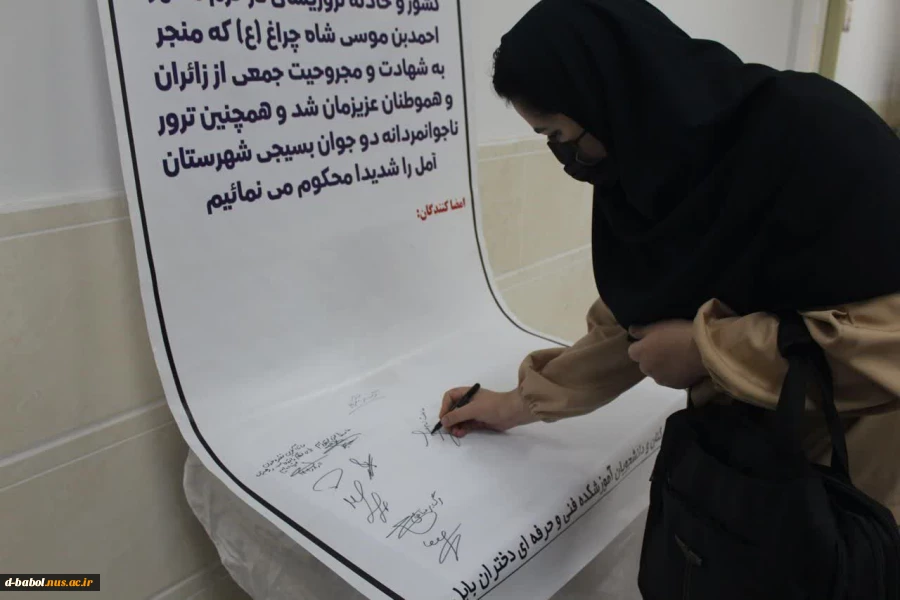 کشور و حادثه تروریستی در حرم
احمدبن موسی شاه چراغ (ع) که منجر
به شهادت و مجروحیت جمعی از زائران
و هموطنان عزیزمان شد و همچنین ترور
ناجوانمردانه دو جوان بسیجی شهرستان
آمل را شدیدا محکوم می نمائیم
امضا کنندگان:
دانشجویان آموزشکده فنی و حرفه ای دختران بابل
d-babol.nus.ac.ir